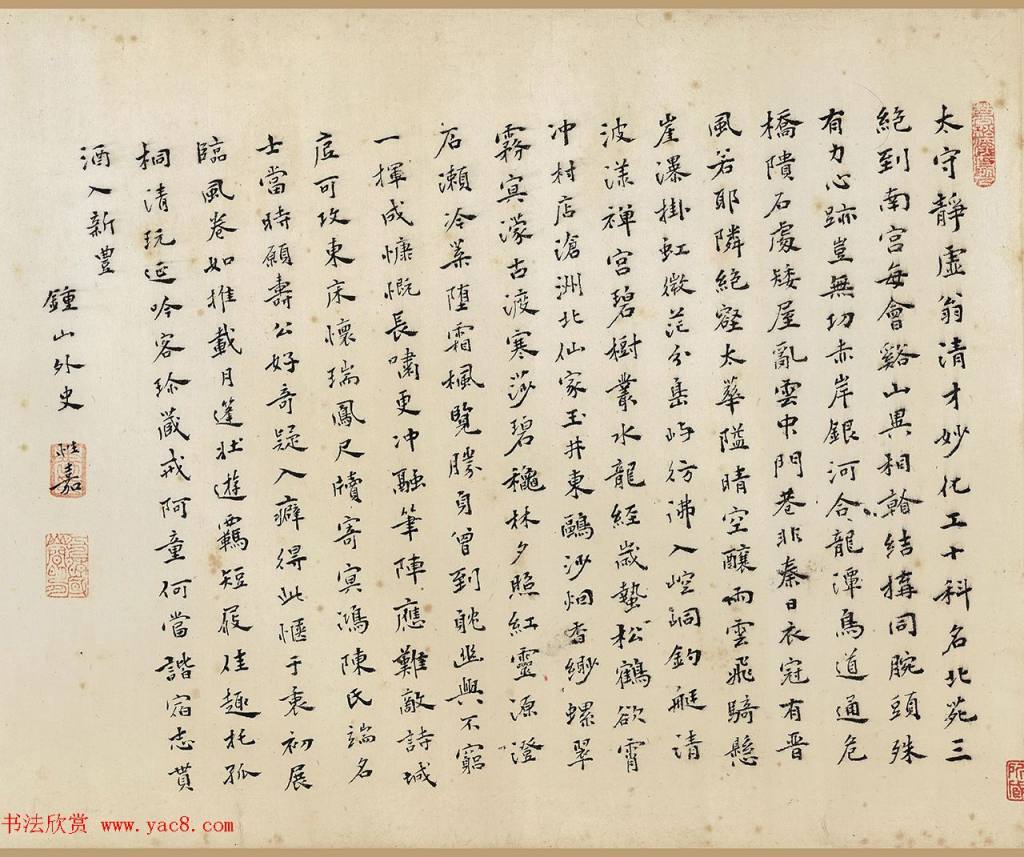 太守靜虛翁清才妙化工十科名北苑三
絕到南宮每會谿山興相翰結搆同腕頭殊
有力心跡豈無功赤岸銀河合龍潭鳥道通危
橋隤石處矮屋亂雲中門巷非秦日衣冠有晉
風若耶隣絕壑太華隘晴空釀雨雲飛騎懸
崖瀑掛虹微茫分島嶼彷彿入崆峒釣艇清
波漾禪宮碧樹叢水龍經歲蟄松鶴欲霄
冲村店滄洲北仙家玉井東鷗沙烟杳緲螺翠
霧冥濛古渡寒莎碧穐林夕照紅靈源澄
石瀨冷葉堕霜楓覽勝身曾到耽幽興不窮
一揮成慷慨長嘯更冲融筆陣應難敵詩城
底可攻東床懷瑞鳳尺牘寄冥鴻陳氏端名
士當時願壽公好奇疑入癖得此愜于衷初展
臨風卷如推載月篷壮遊羈短屐佳趣托孤
桐清玩延吟客珍藏戒阿童何當諧宿志貰
酒入新豊
鍾山外史
嘉
书法欣赏 www.yac8.com